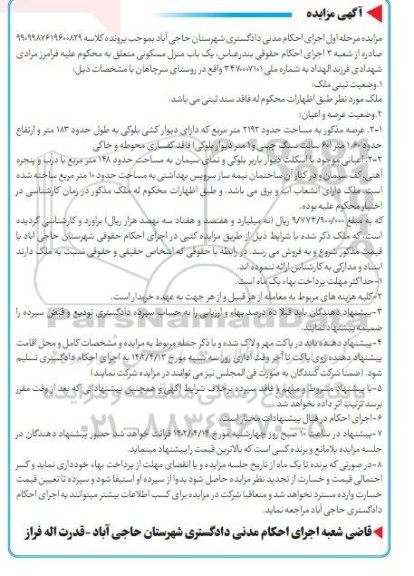 آگهی مزایده
مزایده مرحله اول اجرای احکام مدنی دادگستری شهرستان حاجی آباد بموجب پرونده کلاسه ۹۹۰۹۹۸۷۶۱۹۶۰۰۸۳۹
صادره از شعبه ۳ اجرای احکام حقوقی بندرعباس، یک باب منزل مسکونی متعلق به محکوم علیه فرامرز مرادی
شهدادی فرزند الهداد به شماره ملی ۳۴۷۰۰۰۷۱۰۱ واقع در روستای سرچاهان با مشخصات ذیل:
۱.وضعیت ثبتی ملک:
ملک مورد نظر طبق اظهارات محکوم له فاقد سند ثبتی می باشد.
۲.وضعیت عرصه و اعیان:
۲-۱. عرصه مذکور به مساحت حدود ۲۱۹۲ متر مربع که دارای دیوار کشی بلوکی به طول حدود ۱۸۳ متر و ارتفاع
حدود ۱،۶۰ متر (۶۰ سانت سنگ چینی و ۱ متر دیوار بلوکی) فاقد کفسازی محوطه و خاکی
۲-۲. اعیانی موجود با اسکلت دیوار باربر بلوکی و نمای سیمان به مساحت حدود ۱۴۸ متر مربع با درب و پنجره
آهنی، کف سیمان و در کنار آن ساختمان نیمه ساز سرویس بهداشتی به مساحت حدود ۱۰ متر مربع ساخته شده
است، ملک دارای انشعاب آب و برق می باشد. و طبق اظهارات محکوم له ملک مذکور در زمان کارشناسی در
اختیار محکوم علیه بوده.
که به مبلغ ۹/۷۷۳/۹۰۰/۰۰۰ ریال (نه میلیارد و هفتصد و هفتاد سه نهصد هزار ریال) براورد و کارشناسی گردیده
است، که ملک ذکر شده با شرایط ذیل از طریق مزایده کتبی در اجرای احکام حقوقی شهرستان حاجی آباد با
قیمت مذکور شروع و به فروش می رسد. در رابطه با حقوقی که اشخاص حقیقی و حقوقی نسبت به ملک دارند
اسناد و مدارکی به کارشناس ارائه ننموده اند.
۱-حداکثر مهلت پرداخت بهاء یک ماه است.
۲-کلیه هزینه های مربوط به معامله از هر قبیل و از هر جهت به عهده خریدار است.
۳-پیشنهاد دهندگان باید قبلا ده درصد بهاء و ارزیابی را به حساب سپرده دادگستری تودیع و فیش سپرده را
ضمیمه پیشنهاد نمایند.
۴-پیشنهاد دهنده باید در پاکت مهر و لاک شده و با ذکر جمله مربوط به مزایده و مشخصات کامل و محل اقامت
پیشنهاد دهنده روی پاکت تا آخر وقت اداری روز سه شنبه مورخ ۱۴۰۲/۴/۱۳ به اجرای احکام دادگستری تسلیم
شود. (ضمنا شرکت کنندگان به صورت فی المجلس نیز می توانند در مزایده شرکت نمایند)
۵-با پیشنهاد مشروط و مبهم و فاقد سپرده برخلاف شرایط آگهی و همچنین پیشنهاداتی که بعد از وقت مقرر
برسد ترتیب اثر داده نخواهد شد.
۶-اجرای احکام در قبال پیشنهادات مختار است.
۷-پیشنهاد در ساعت ۱۰ صبح روز چهارشنبه مورخ ۱۴۰۲/۰۴/۱۴ قرائت خواهد شد حضور پیشنهاد دهندگان در
جلسه مزایده بلامانع و برنده کسی است که بالاترین قیمت را پیشنهاد مینماید.
۸-در صورتی که برنده تا یک ماه از تاریخ جلسه مزایده و یا انقضای مهلت از پرداخت بهاء خودداری نماید و کسر
احتمالی قیمت و خسارت از تجدید نظر مزایده حاصل شود بدوا از سپرده او استیفا شود و سپرده تا تعیین قیمت
خسارت وارده مسترد نخواهد شد و متعاقبا شرکت در مزایده برای کسب اطلاعات بیشتر میتوانند به اجرای احکام
دادگستری حاجی آباد مراجعه نماید.
قاضی شعبه اجرای احکام مدنی دادگستری شهرستان حاجی آباد -قدرت اله فراز